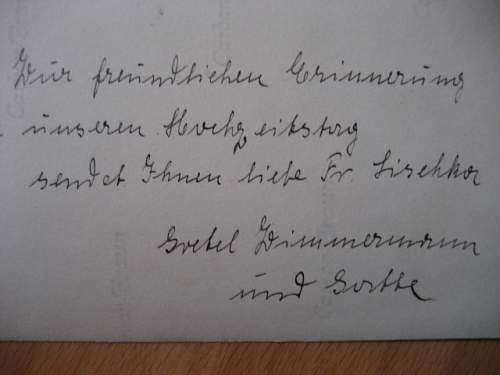 Zur freundlichen Erinnerung
unseren Hochzeitstag
sendet Ihnen liebe Fr. Lischka
Gretel Zimmermann
und Gatte